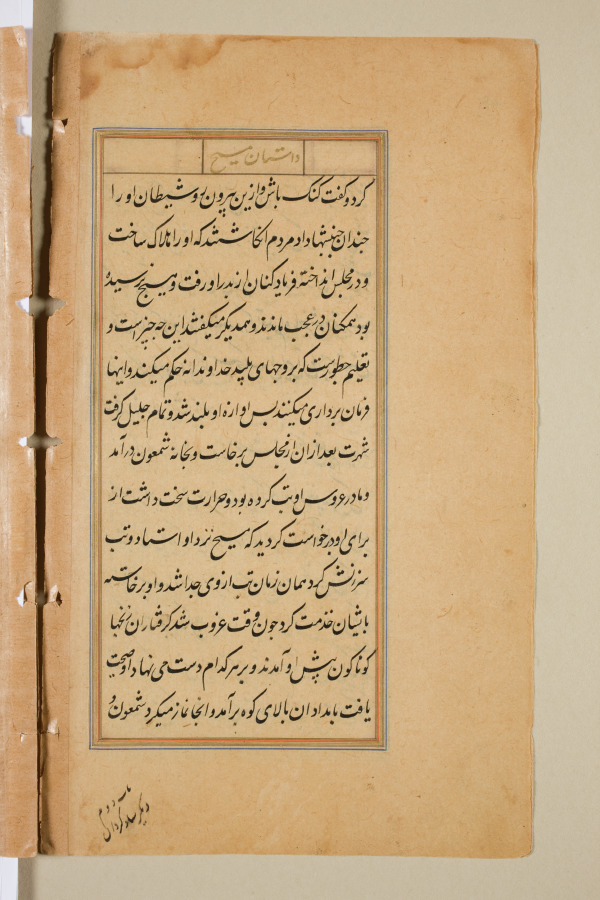 داستان مسیح
کرد و کفت کنک باش و ازین بیرون رو شیطان او را
جندان جنبشها داد مردم انجا شتند که او را هلاک ساخت
و در مجلس انداخته فریاد کنان از بدر او رفت و هیج نرسیده
بود همکنان در عجب ماندند و همدیکر میکفتند این جه جیز است و
تعلیم جطورست که بر وحهای پلید خداوندانه حکم میکند و اینها
فرمان برداری میکنند پس اوازه او بلند شد و تمام جلیل کرفت
شهرت بعد از ان از مجلس برخاست و بخانه شمعون درآمد
و مادر عروس او تب کرده بود و حرارت سخت داشت از
برای او درخواست کردید که مسیح نزد او استاد و تب
سرزنش کرد همان زمان تب از وی جدا شد و او برخاسته
بایشان خدمت کرد جون وقت غروب شد کرفتاران رنجها
کوناکون پیش او آمدند و بر هر کدام دست می نهاد او صحت
یافت بامدادان بالای کوه برآمد و انجا نماز میکرد شمعون و